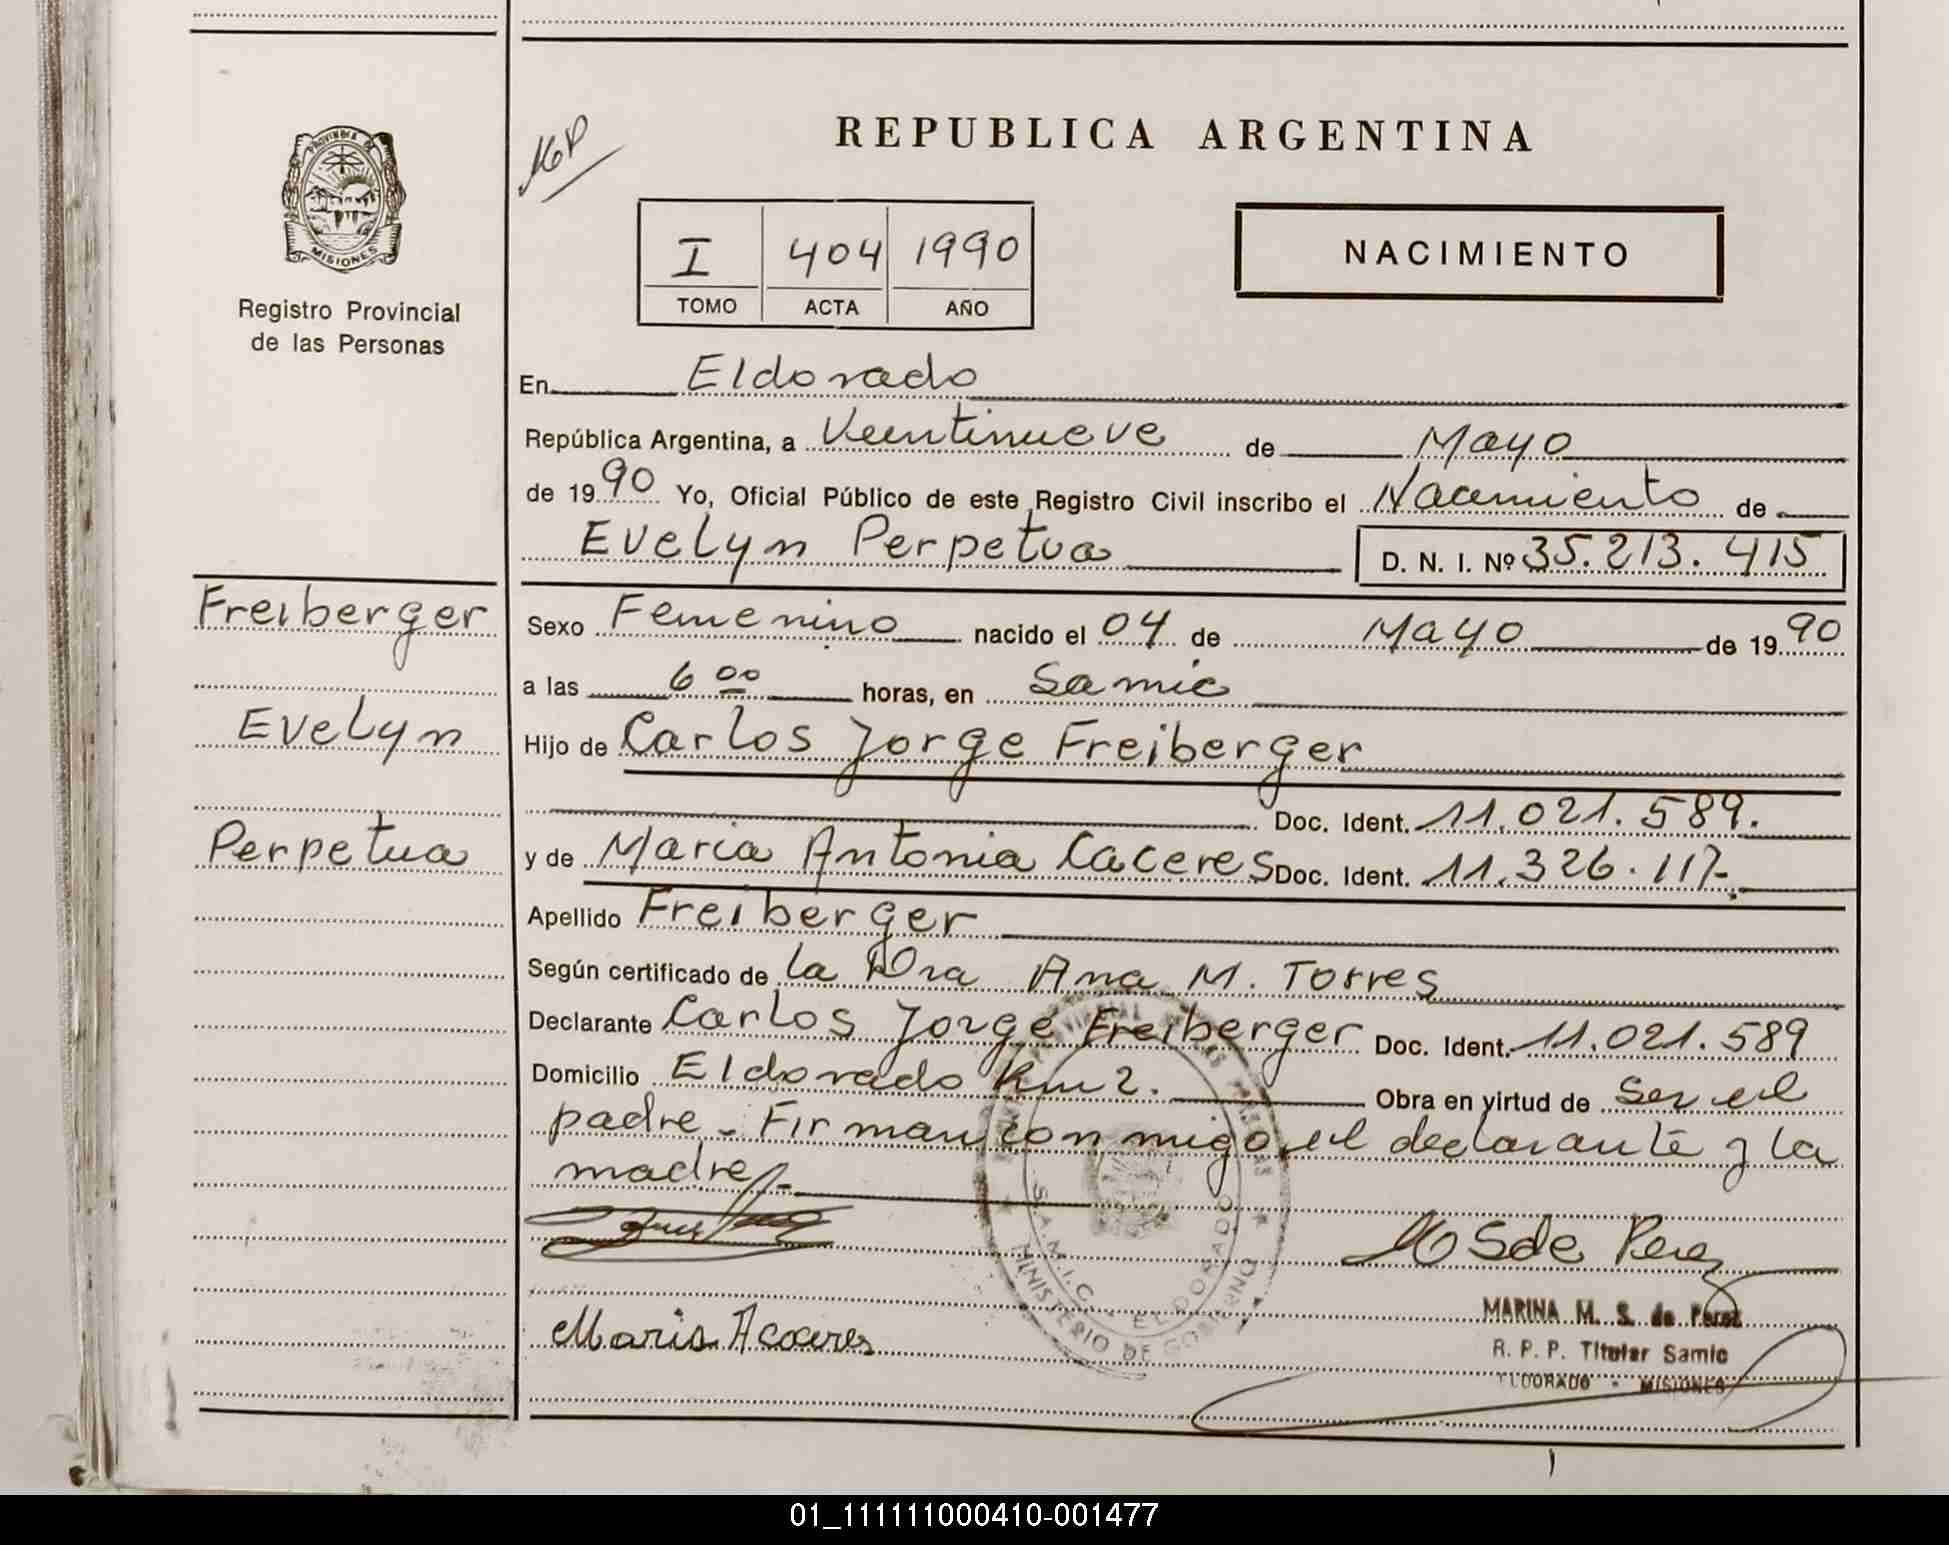 REPUBLICA ARGENTINA
PROVINCIA DE MISIONES
Registro Provincial
de las Personas
I 404 1990
TOMO ACTA AÑO
NACIMIENTO
En Eldorado
República Argentina, a Veentinueve de Mayo
de 19 90 Yo, Oficial Público de este Registro Civil inscribo el Nacimiento de
Evelyn Perpetua D. N. I. Nº 35.213.415
Freiberger
Evelyn
Perpetua
Sexo Femenino nacido el 04 de Mayo de 19 90
a las 6 00 horas, en Samic
Hijo de Carlos Jorge Freiberger
Doc. Ident. 11.021.589.
y de Maria Antonia Caceres Doc. Ident. 11.326.117.
Apellido Freiberger
Según certificado de la Dra Ana M. Torres
Declarante Carlos Jorge Freiberger Doc. Ident. 11.021.589
Domicilio Eldorado Km 2. Obra en virtud de ser el
padre - Firman conmigo el declarante y la
madre.-
S.A.M.I.C. ELDORADO
MINISTERIO DE GOBIERNO
M S de Perez
MARINA M. S. de Perez
R. P. P. Titular Samic
ELDORADO - MISIONES
Maria A Caceres
01_111111000410-001477